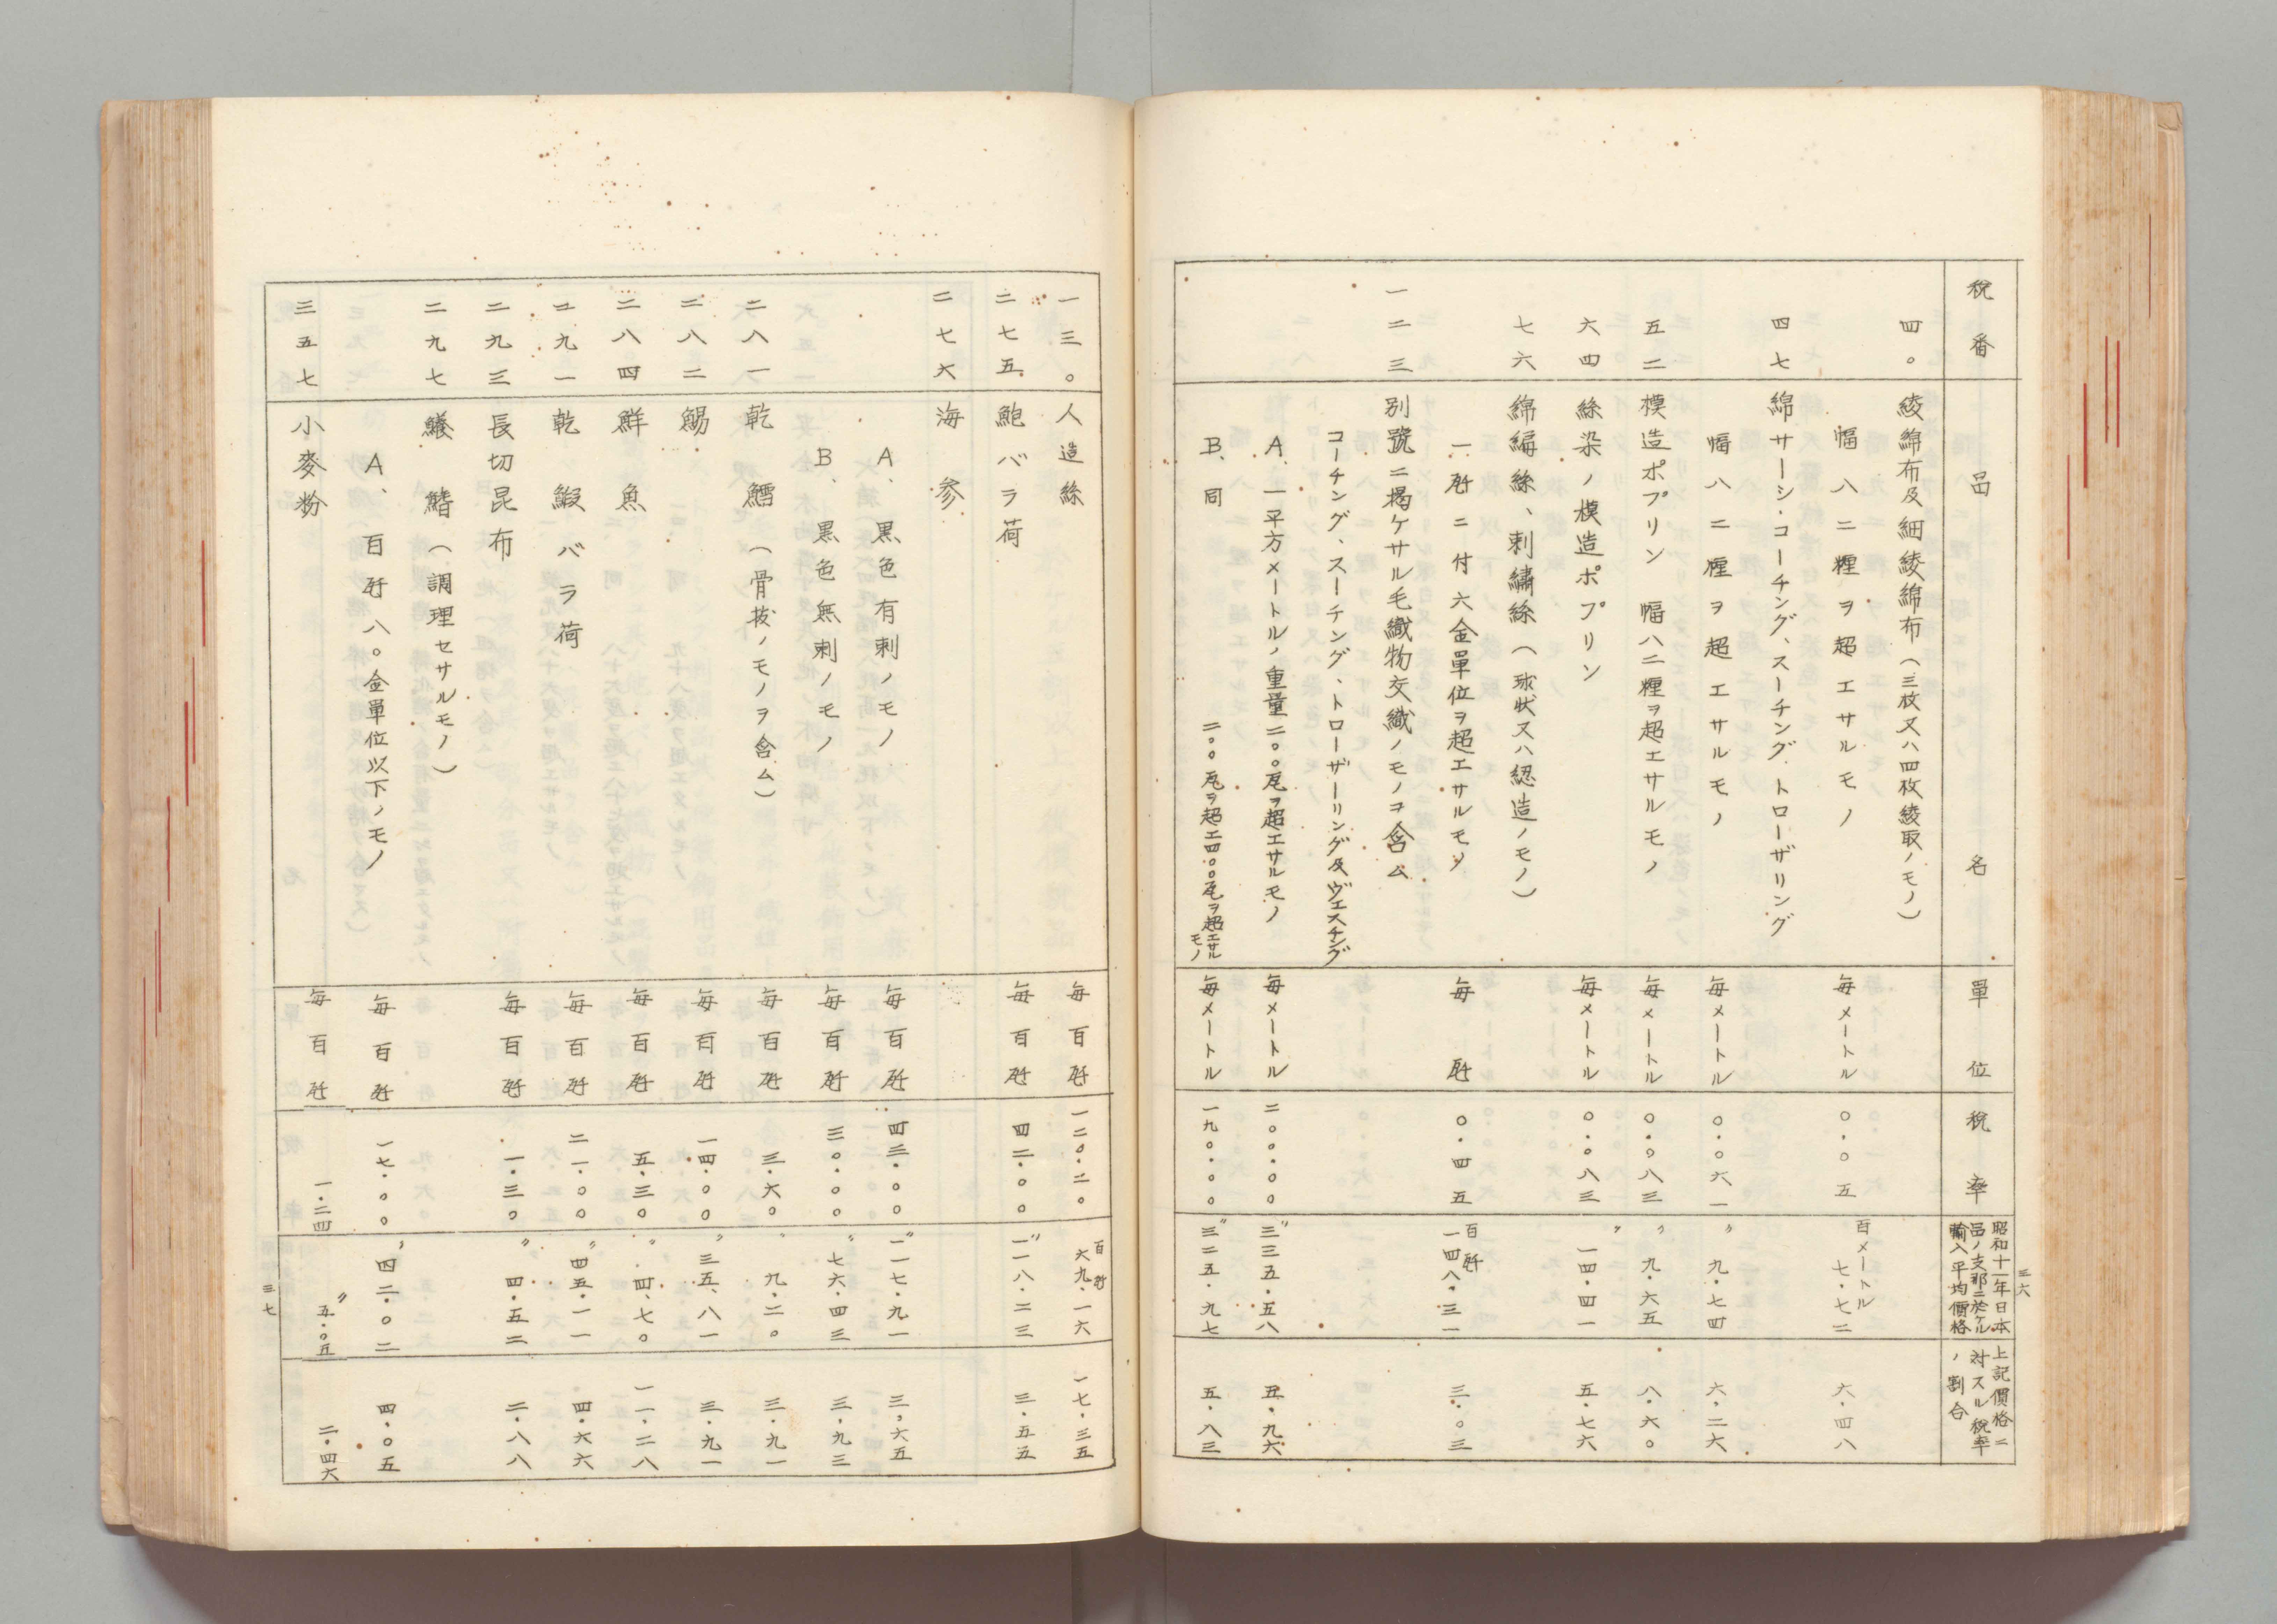 三六
税番
品名
單位
税率
昭和十一年日本
品ノ支那ニ於ケル
輸入平均價格
上記價格ニ
對スル税率
ノ割合
四〇 綾綿布及細綾綿布(三枚又ハ四枚綾取ノモノ)
幅八二糎ヲ超エサルモノ 毎メートル 〇・〇五 百メートル 七・七二 六・四八
四七 綿サーシ・コーチング、スーチング、トローザリング
幅八二糎ヲ超エサルモノ 毎メートル 〇・〇六一 〃 九・七四 六・二六
五二 模造ポプリン 幅八二糎ヲ超エサルモノ 毎メートル 〇・〇八三 〃 九・六五 八・六〇
六四 絲染ノ模造ポプリン 毎メートル 〇・〇八三 〃 一四・四一 五・七六
七六 綿編絲、刺繡絲(球狀又ハ認造ノモノ)
一瓩ニ付六金單位ヲ超エサルモノ 毎瓩 〇・四五 百瓩 一四八・三一 三・〇三
一二三 別號ニ揭ケサル毛織物交織ノモノヲ含ム
コーチング、スーチング、トローザーリング及ヴェスチング
A、一平方メートルノ重量二〇〇瓦ヲ超エサルモノ 毎メートル 二〇〇・〇〇 〃 三三五・五八 五・九六
B、同 二〇〇瓦ヲ超エ四〇〇瓦ヲ超エサルモノ 毎メートル 一九〇・〇〇 〃 三二五・九七 五・八三
一三〇 人造絲 毎百瓩 一二〇・二〇 百瓩 六九・一六 一七・三五
二七五 鮑バラ荷 毎百瓩 四二・〇〇 〃 一一八・二三 三・五五
二七六 海参
A、黒色有刺ノモノ 毎百瓩 四三・〇〇 〃 一一七・九一 三・六五
B、黒色無刺ノモノ 毎百瓩 三〇・〇〇 〃 七六・四三 三・九三
二八一 乾鱈(骨拔ノモノヲ含ム) 毎百瓩 三・六〇 〃 九・二〇 三・九一
二八二 鯣 毎百瓩 一四・〇〇 〃 三五・八一 三・九一
二八四 鮮魚 毎百瓩 五・三〇 〃 四・七〇 一一・二八
二九一 乾鰕バラ荷 毎百瓩 二一・〇〇 〃 四五・一一 四・六六
二九三 長切昆布 毎百瓩 一・三〇 〃 四・五二 二・八八
二九七 鱶鰭(調理セサルモノ)
A、百瓩八〇金單位以下ノモノ 毎百瓩 一七・〇〇 〃 四二・〇二 四・〇五
三五七 小麥粉 毎百瓩 一・二四 〃 五・〇五 二・四六
三七